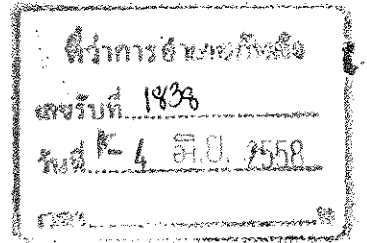 ที่ว่าการอำเภอ
เลขรับที่ 1838
วันที่ - 4 มิ.ย. 2558
เวลา น.